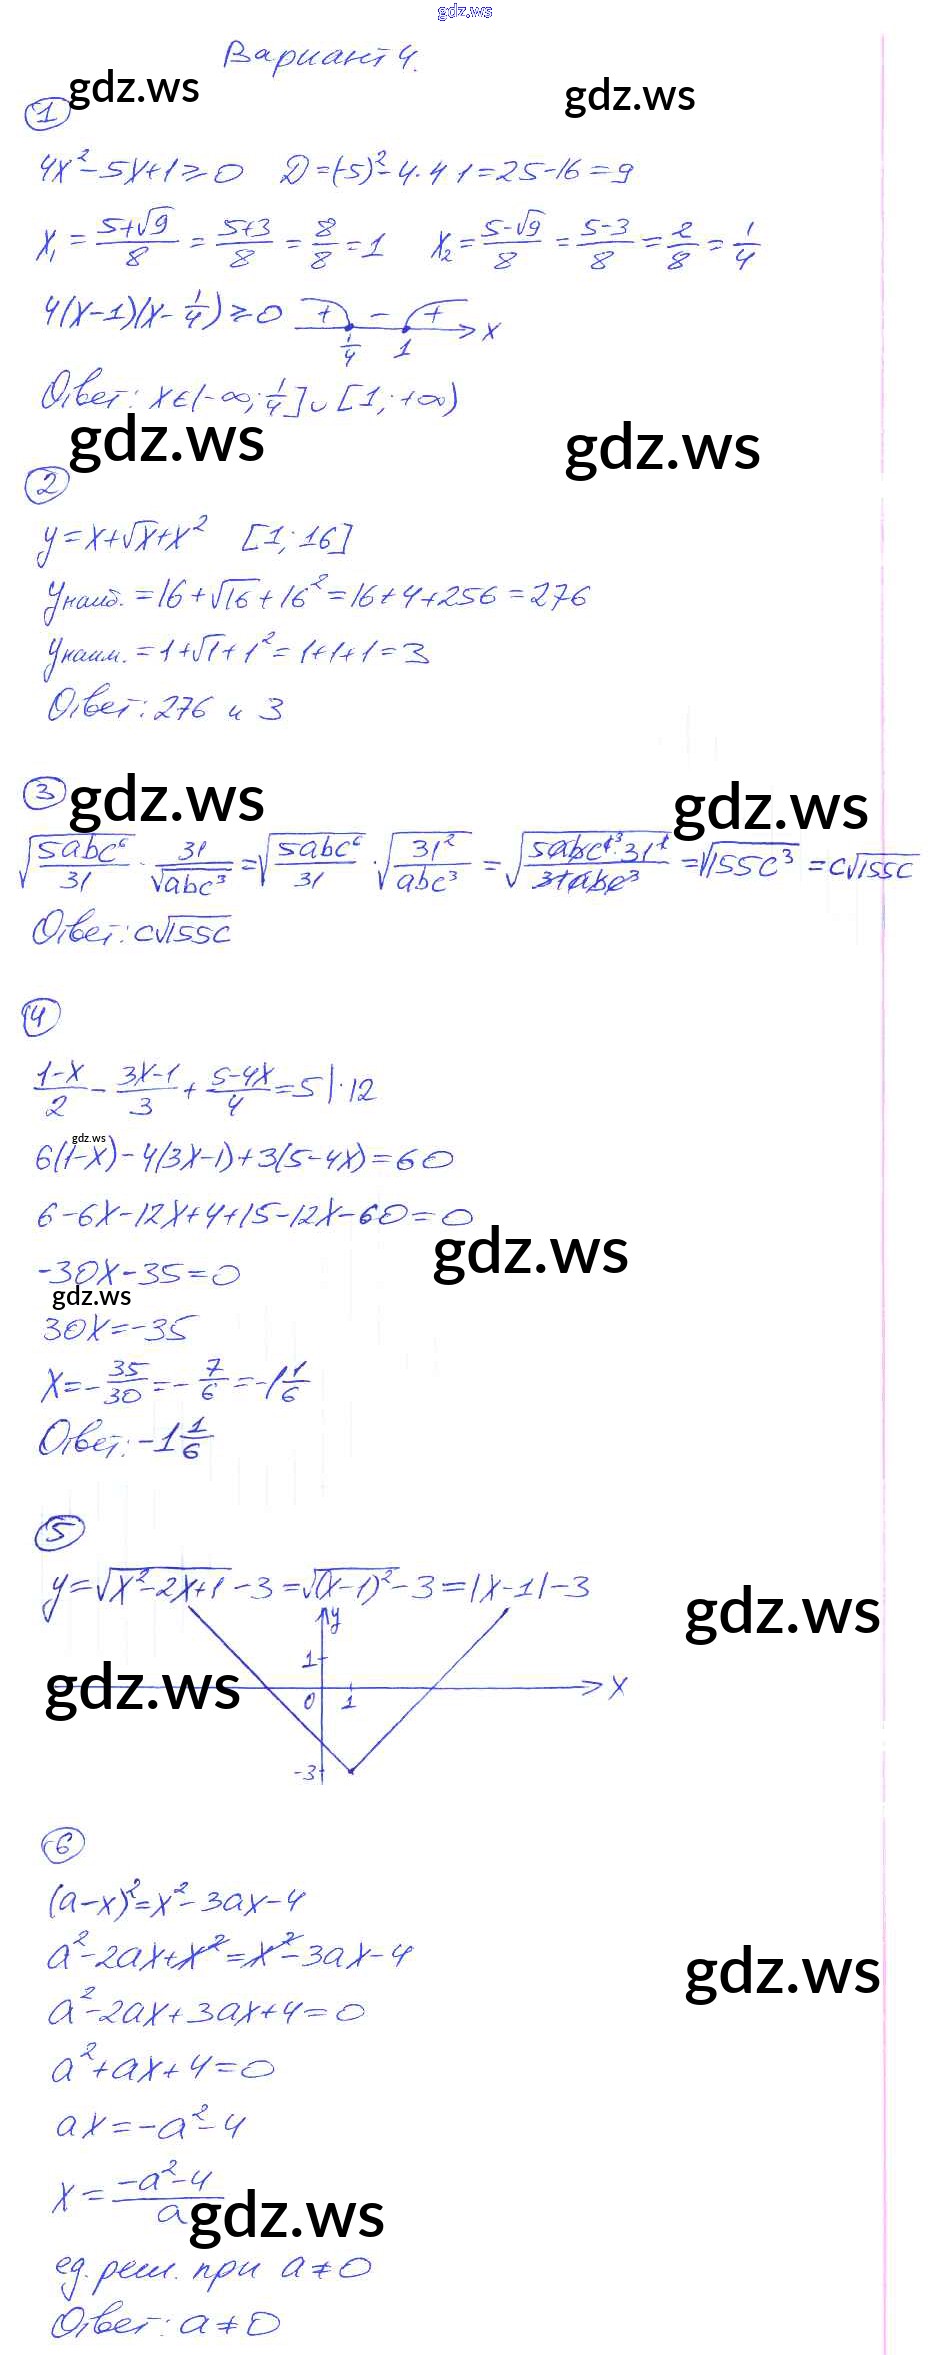 gdz.ws
Вариант 4.
gdz.ws
gdz.ws
1
4x² - 5x + 1 ≥ 0 D = (-5)² - 4·4·1 = 25 - 16 = 9
x₁ = (5+√9)/8 = (5+3)/8 = 8/8 = 1 x₂ = (5-√9)/8 = (5-3)/8 = 2/8 = 1/4
4(x-1)(x - 1/4) ≥ 0 + - + x
1/4 1
Ответ: x ∈ (-∞; 1/4] ∪ [1; +∞)
gdz.ws
gdz.ws
2
y = x + √x + x² [1; 16]
yнаиб. = 16 + √16 + 16² = 16 + 4 + 256 = 276
yнаим. = 1 + √1 + 1² = 1+1+1 = 3
Ответ: 276 и 3
3
gdz.ws
gdz.ws
√(5abc⁶/31) · 31/√(abc³) = √(5abc⁶/31) · √(31²/abc³) = √(5abc⁶·31²/31abc³) = √(155c³) = c√155c
Ответ: c√155c
4
(1-x)/2 - (3x-1)/3 + (5-4x)/4 = 5 |·12
gdz.ws
6(1-x) - 4(3x-1) + 3(5-4x) = 60
6 - 6x - 12x + 4 + 15 - 12x - 60 = 0
gdz.ws
-30x - 35 = 0
gdz.ws
30x = -35
x = -35/30 = -7/6 = -1 1/6
Ответ: -1 1/6
5
y = √(x²-2x+1) - 3 = √((x-1)²) - 3 = |x-1| - 3
gdz.ws
y
1
gdz.ws
0 1 x
-3
6
(a-x)² = x² - 3ax - 4
a² - 2ax + x² = x² - 3ax - 4
gdz.ws
a² - 2ax + 3ax + 4 = 0
a² + ax + 4 = 0
ax = -a² - 4
x = (-a² - 4)/a
gdz.ws
ед. реш. при a ≠ 0
Ответ: a ≠ 0